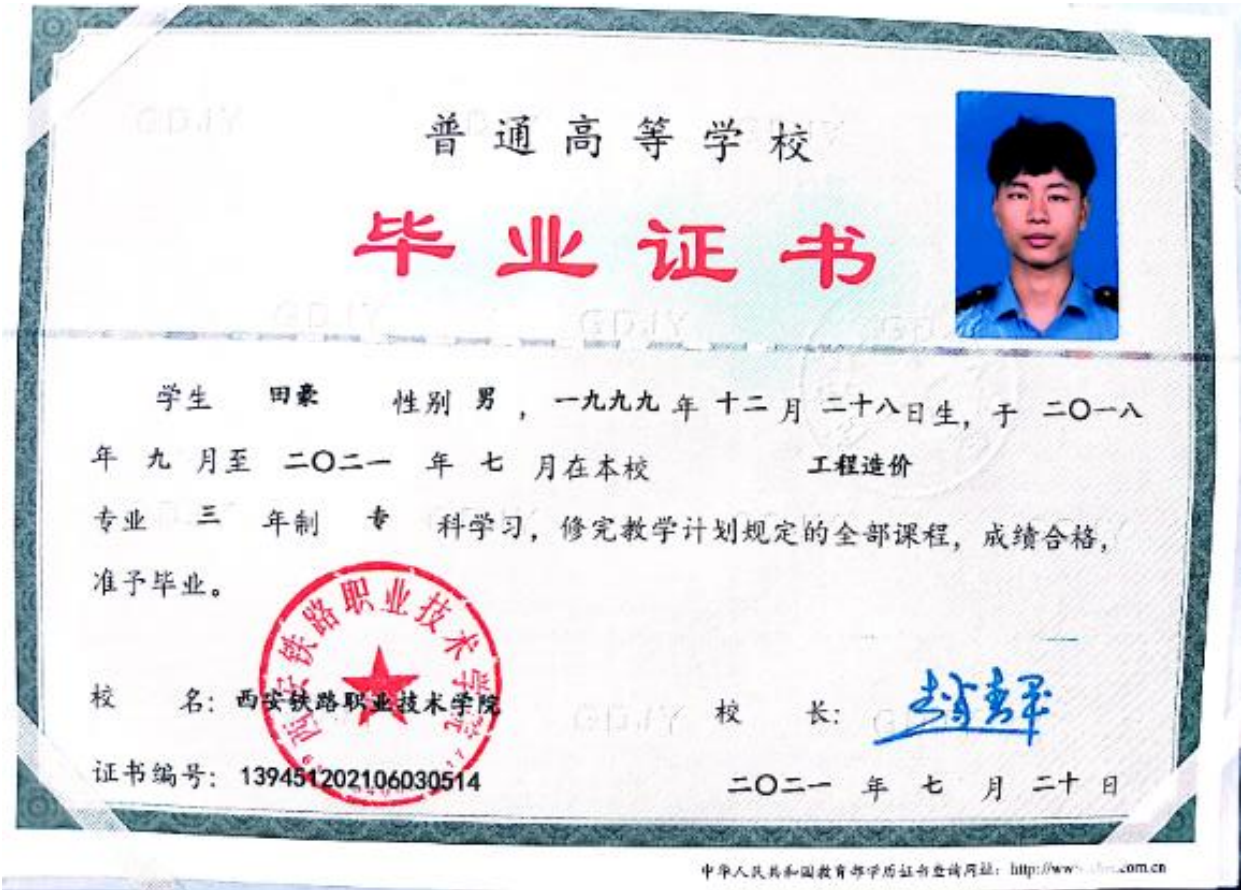 普通高等学校
毕业证书
学生 田豪 性别 男，一九九九 年 十二 月 二十八日生，于 二〇一八
年 九 月至 二〇二一 年 七 月在本校 工程造价
专业 三 年制 专 科学习，修完教学计划规定的全部课程，成绩合格，
准予毕业。
西安铁路职业技术学院
校 名：西安铁路职业技术学院 校 长：
证书编号：139451202106030514 二〇二一 年 七 月 二十 日
中华人民共和国教育部学历证书查询网址：http://www. .com.cn